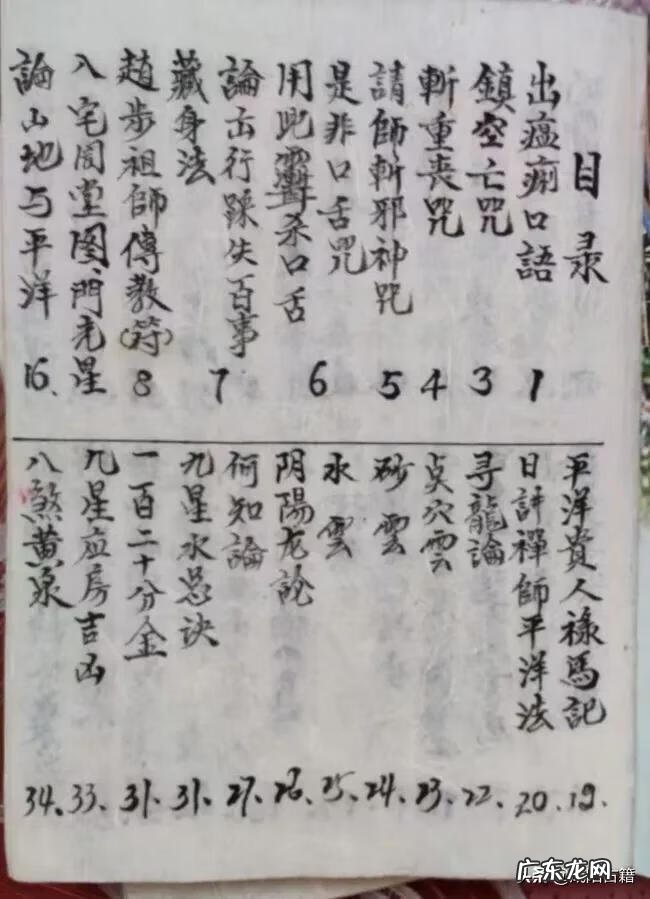 目录
出瘟痢口語 1
鎮空亡咒 3
斬重喪咒 4
請師斬邪神咒 5
是非口舌咒
用此杀口舌 6
論出行踩失百事 7
藏身法
趙步祖師傳教(符) 8
八宅周堂图、門光星
論山地与平洋 16、
平洋贵人祿馬記 19、
日許禪師平洋法 20、
寻龍論 22、
点穴雲 23、
砂雲 24、
水雲 25、
阴陽龙說 26、
何知論 27、
九星水总诀 31、
一百二十分金 31、
九星应房吉凶 33、
八煞黄泉 34、
广东龙网